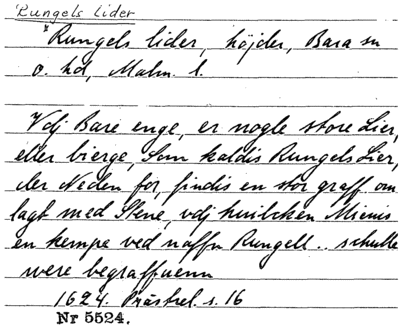 Rungels lider
*Rungels lider, höjder, Bara sn
o. hd, Malm. l.
Vdj Bare enge, er nogle store Lier,
eller bierge, Som kaldis Rungels Lier,
der Neden for, findis en stor graff om
lagt med Stene, vdj huilcken Mienis
en kempe ved naffn Rungell .. schulle
were begraffuenn
1624. Prästrel. s. 16
Nr 5524.